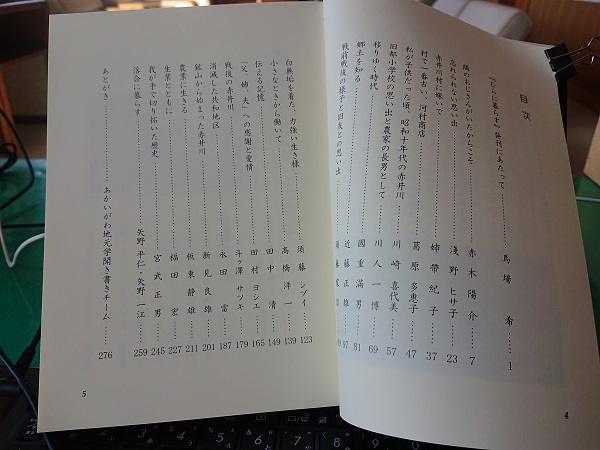 目次
『むらに暮らす』発刊にあたって 馬場 希 1
隣のおじさんがいたからこそ 赤木 陽介 7
忘れられない思い出 淺野 ヒサ子 23
赤井川村に嫁いで 姉帯 紀子 37
村で一番古い、河村商店 葛原 多恵子 47
私が子供だった頃、昭和十年代の赤井川 川崎 喜代美 57
旧都小学校の思い出と農家の長男として 川人 一博 69
移りゆく時代 國重 満男 81
郷土を知る 近藤 正雄 97
戦前戦後の様子と旧友との思い出
4
白無垢を着た、力強い生き様 須藤 シヅイ 123
小さなときから働いて 高橋 洋一 139
伝える記憶 田中 清 149
「父、姉、夫」への感謝と愛情 田村 ヨシエ 165
戦後の赤井川 斗ヶ澤 サツキ 179
消滅した共和地区 永田 雷 187
鉱山から始まった赤井川 新見 良雄 201
農業に生きる 板東 静雄 211
生業とともに 福田 宏 227
我が手で切り拓いた歴史 宮武 正男 245
落合に暮らす 矢野 平仁・矢野 一江 259
あとがき あかいがわ地元学聞き書きチーム 276
5